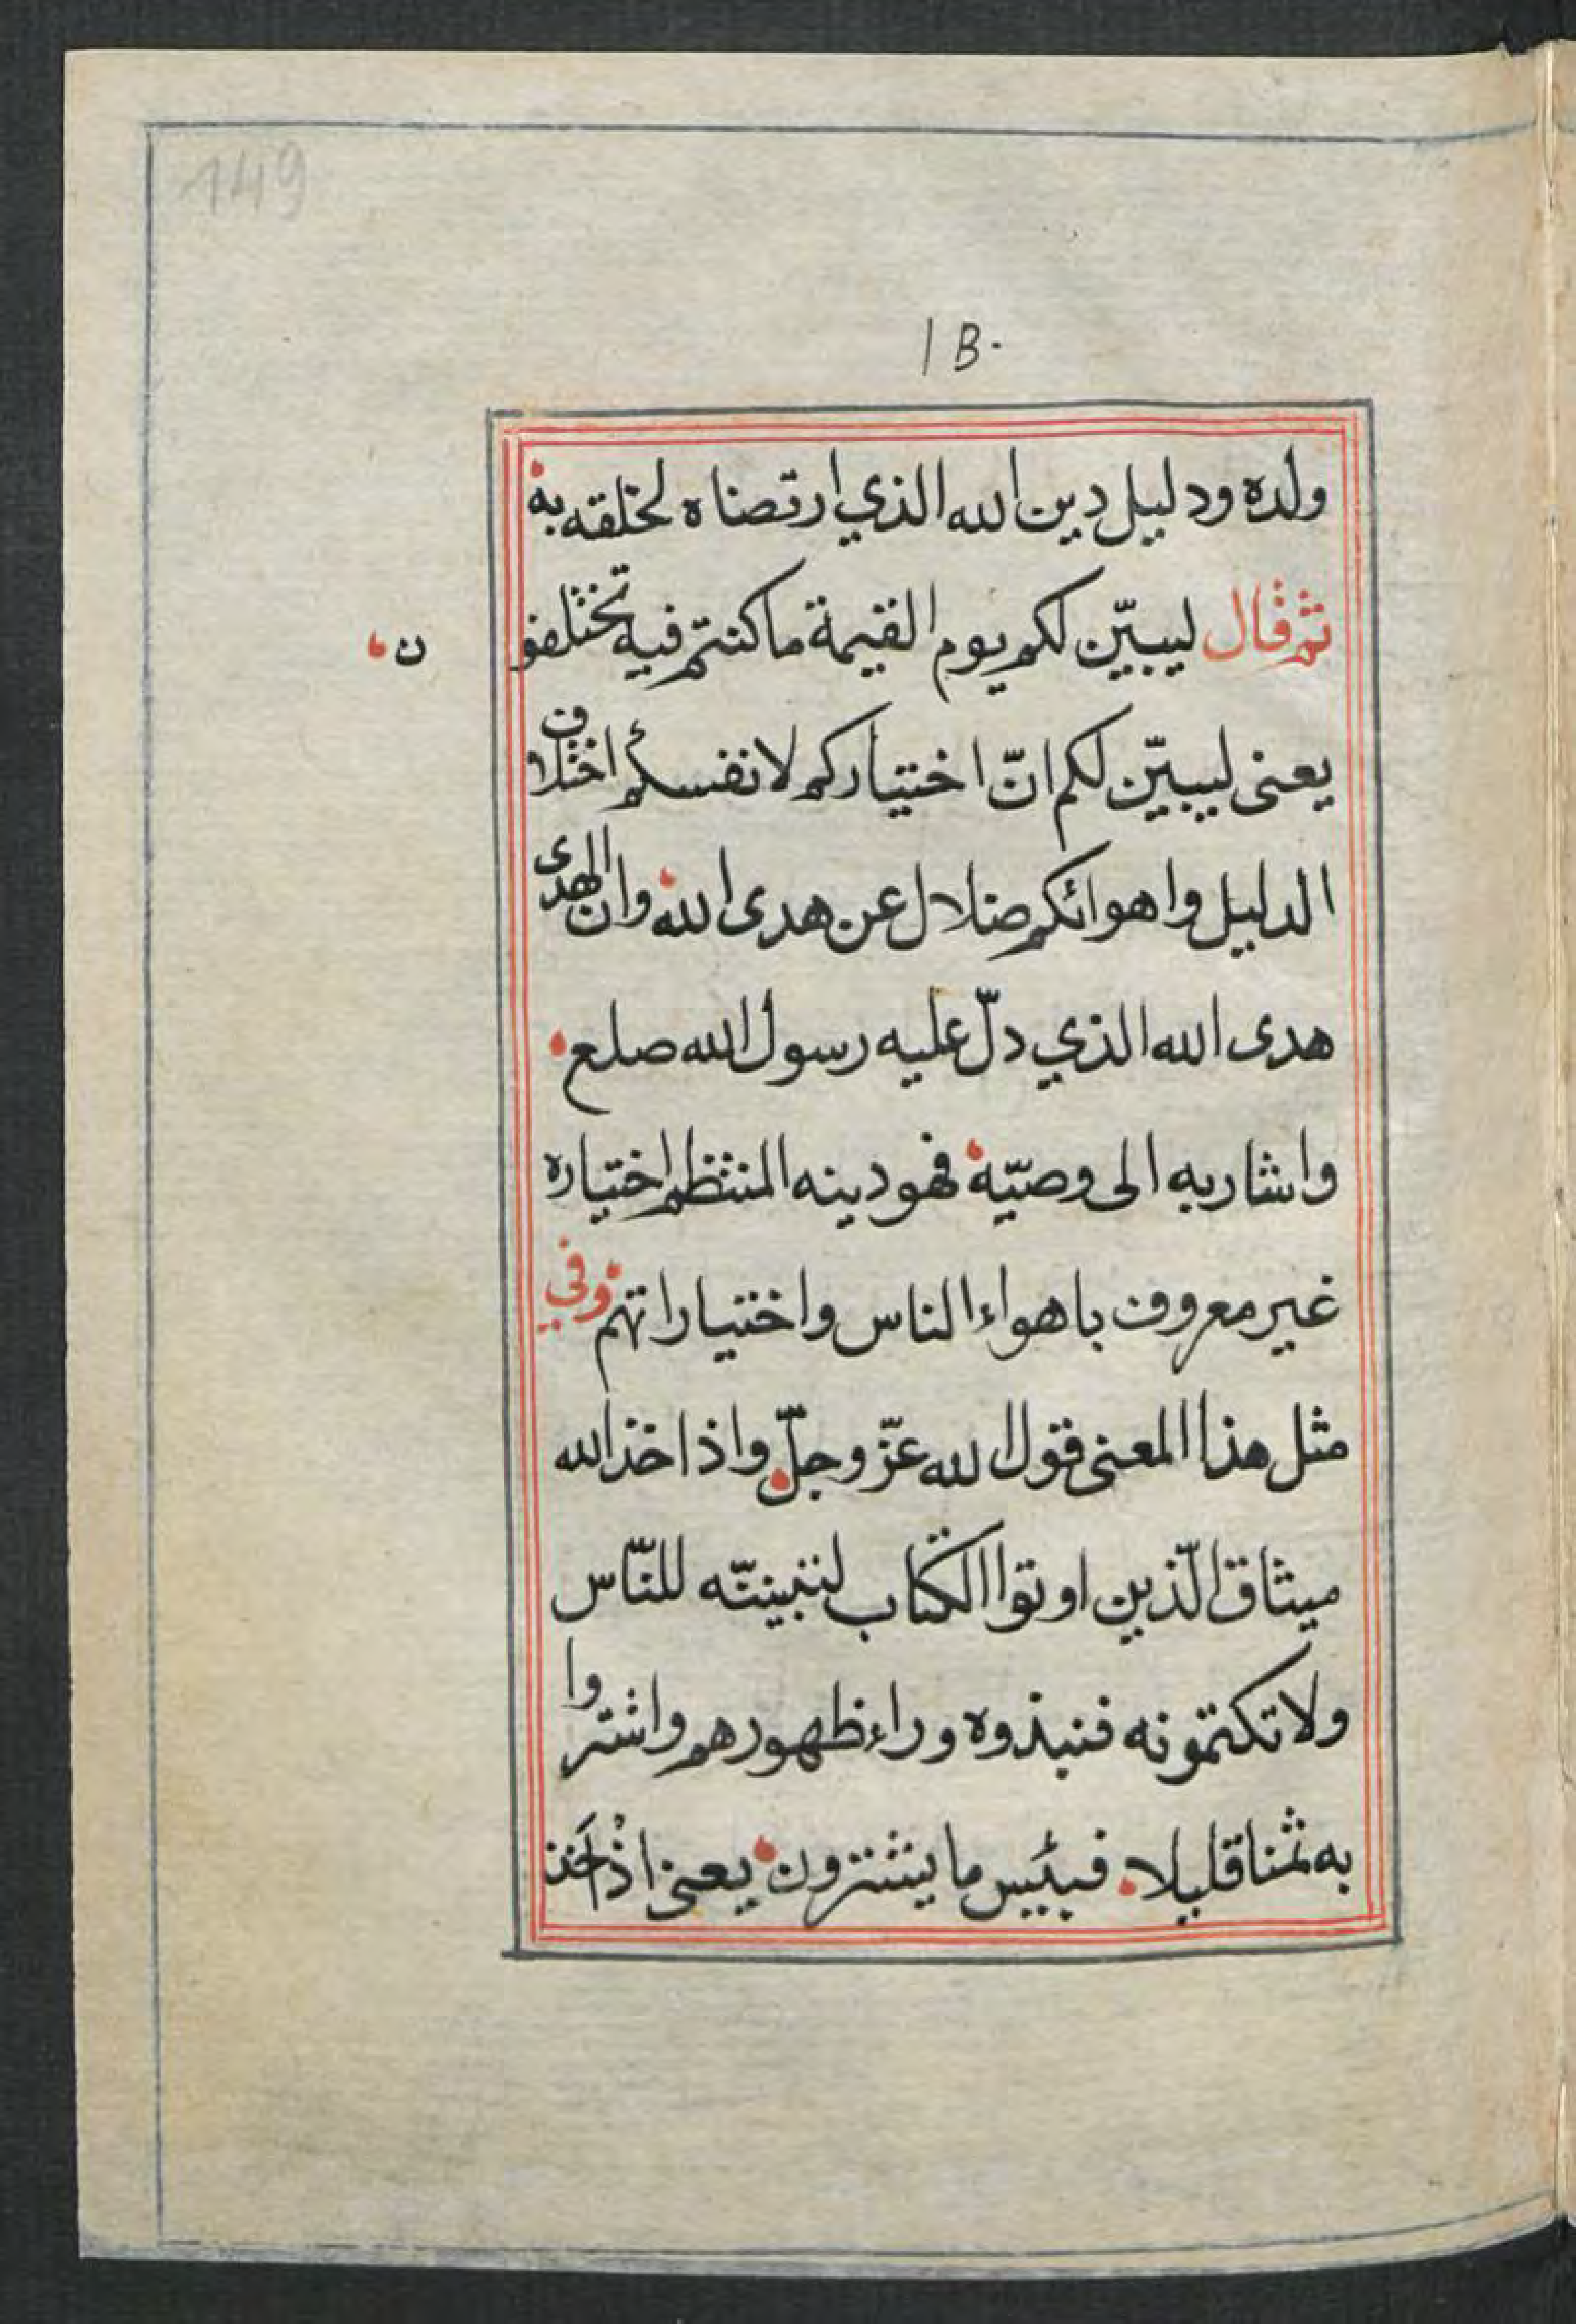 149
1B.
ولده ودليل دين الله الذي ارتضاه لخلقه به
ثم قال ليبيّن لكم يوم القيمة ما كنتم فيه تختلفون
يعنى ليبيّن لكم انّ اختياركم لانفسكم اختلاف
الدليل واهوائكم ضلال عن هدى الله وان الهدى
هدى الله الذي دلّ عليه رسول الله صلع
واشار به الى وصيّه فهو دينه المنتظم اختياره
غير معروف باهواء الناس واختياراتهم وفي
مثل هذا المعنى قول الله عزّ وجلّ واذ اخذ الله
ميثاق الّذين اوتوا الكتاب لتبيننّه للنّاس
ولا تكتمونه فنبذوه وراء ظهورهم واشتروا
به ثمنا قليلا فبئيس ما يشترون يعنى اذْ اخذ